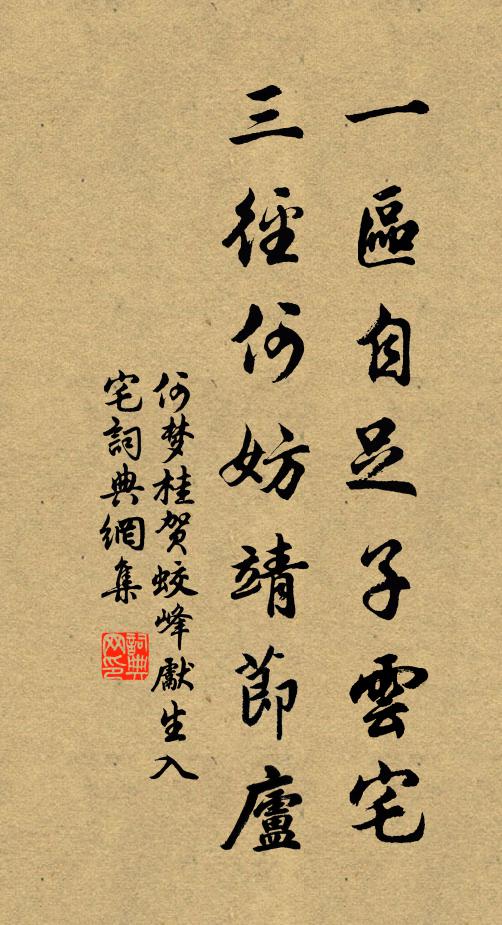 一區自足子雲宅
三徑何妨靖節廬
何梦桂贺蛟峰獻生入
宅詞典網集
詞典網印